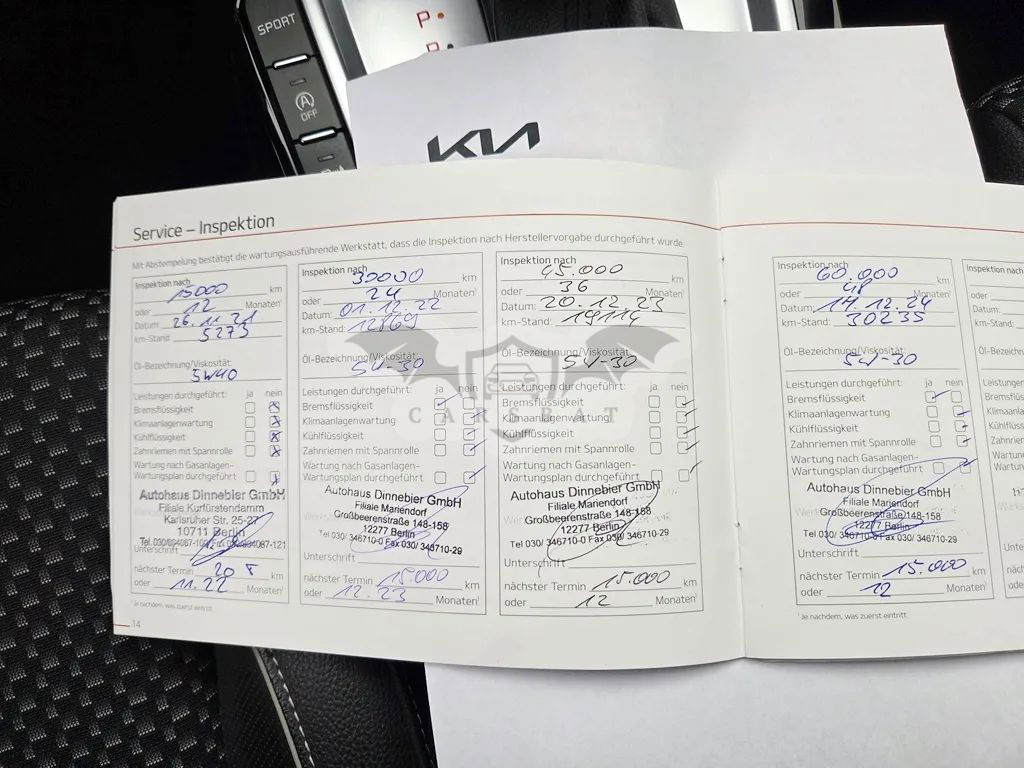 SPORT
P
R
A
OFF
KIA
Service – Inspektion
Mit Abstempelung bestätigt die wartungsausführende Werkstatt, dass die Inspektion nach Herstellervorgabe durchgeführt wurde.
Inspektion nach
15000 km
oder 12 Monaten¹
Datum: 26.11.21
km-Stand: 5273
Öl-Bezeichnung/Viskosität:
5W40
Leistungen durchgeführt: ja nein
Bremsflüssigkeit
Klimaanlagenwartung
Kühlflüssigkeit
Zahnriemen mit Spannrolle
Wartung nach Gasanlagen-
Wartungsplan durchgeführt
Autohaus Dinnebier GmbH
Filiale Kurfürstendamm
Karlsruher Str. 25-27
10711 Berlin
Unterschrift
nächster Termin 20 T km
oder 11.22 Monaten¹
¹ Je nachdem, was zuerst eintritt.
14
Inspektion nach
30000 km
oder 24 Monaten¹
Datum: 01.12.22
km-Stand: 12869
Öl-Bezeichnung/Viskosität:
5W-30
Leistungen durchgeführt: ja nein
Bremsflüssigkeit
Klimaanlagenwartung
Kühlflüssigkeit
Zahnriemen mit Spannrolle
Wartung nach Gasanlagen-
Wartungsplan durchgeführt
Autohaus Dinnebier GmbH
Filiale Mariendorf
Großbeerenstraße 148-158
12277 Berlin
Tel 030/ 346710-0 Fax 030/ 346710-29
Unterschrift
nächster Termin 15.000 km
oder 12.23 Monaten¹
Inspektion nach
45.000 km
oder 36 Monaten¹
Datum: 20.12.23
km-Stand: 19114
Öl-Bezeichnung/Viskosität:
5W-30
Leistungen durchgeführt: ja nein
Bremsflüssigkeit
Klimaanlagenwartung
Kühlflüssigkeit
Zahnriemen mit Spannrolle
Wartung nach Gasanlagen-
Wartungsplan durchgeführt
Autohaus Dinnebier GmbH
Filiale Mariendorf
Großbeerenstraße 148-158
12277 Berlin
Tel 030/ 346710-0 Fax 030/ 346710-29
Unterschrift
nächster Termin 15.000 km
oder 12 Monaten¹
CARSBAT
Inspektion nach
60.000 km
oder 48 Monaten¹
Datum: 14.12.24
km-Stand: 30235
Öl-Bezeichnung/Viskosität:
5W-30
Leistungen durchgeführt: ja nein
Bremsflüssigkeit
Klimaanlagenwartung
Kühlflüssigkeit
Zahnriemen mit Spannrolle
Wartung nach Gasanlagen-
Wartungsplan durchgeführt
Autohaus Dinnebier GmbH
Filiale Mariendorf
Großbeerenstraße 148-158
12277 Berlin
Tel 030/ 346710-0 Fax 030/ 346710-29
Unterschrift
nächster Termin 15.000 km
oder 12 Monaten¹
¹ Je nachdem, was zuerst eintritt.
Inspektion nach
oder
Datum:
km-Stand:
Öl-Bezeichnung
Leistungen
Bremsflüssig
Klimaanlage
Kühlflüssigk
Zahnriemen
Wartung nach
Wartungspla
Unterschrift
nächster Te
oder